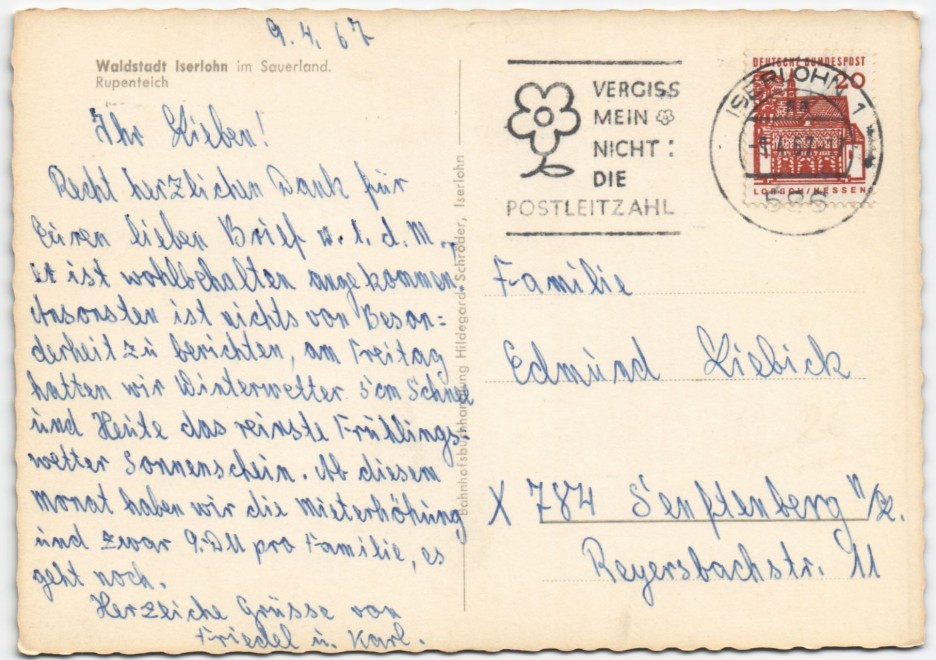 9.4.67
Waldstadt Iserlohn im Sauerland.
Rupenteich
Ihr Lieben!
Recht herzlichen Dank für
Euren lieben Brief u. l. d. M.,
er ist wohlbehalten angekommen.
Ansonsten ist nichts von Beson=
derheit zu berichten, am Freitag
hatten wir Winterwetter 5 cm Schnee
und Heute das reinste Frühlings=
wetter Sonnenschein. Ab diesem
Monat haben wir die Mieterhöhung
und zwar 9. DM pro Familie, es
geht noch.
Herzliche Grüsse von
Friedel u. Karl.
Bahnhofsbuchhandlung Hildegard Schröder, Iserlohn
VERGISS
MEIN
NICHT:
DIE
POSTLEITZAHL
ISERLOHN 1
586
DEUTSCHE BUNDESPOST
20
LORSCH/HESSEN
Familie
Edmund Liebick
X 784 Senftenberg N/L.
Reyersbachstr. 11